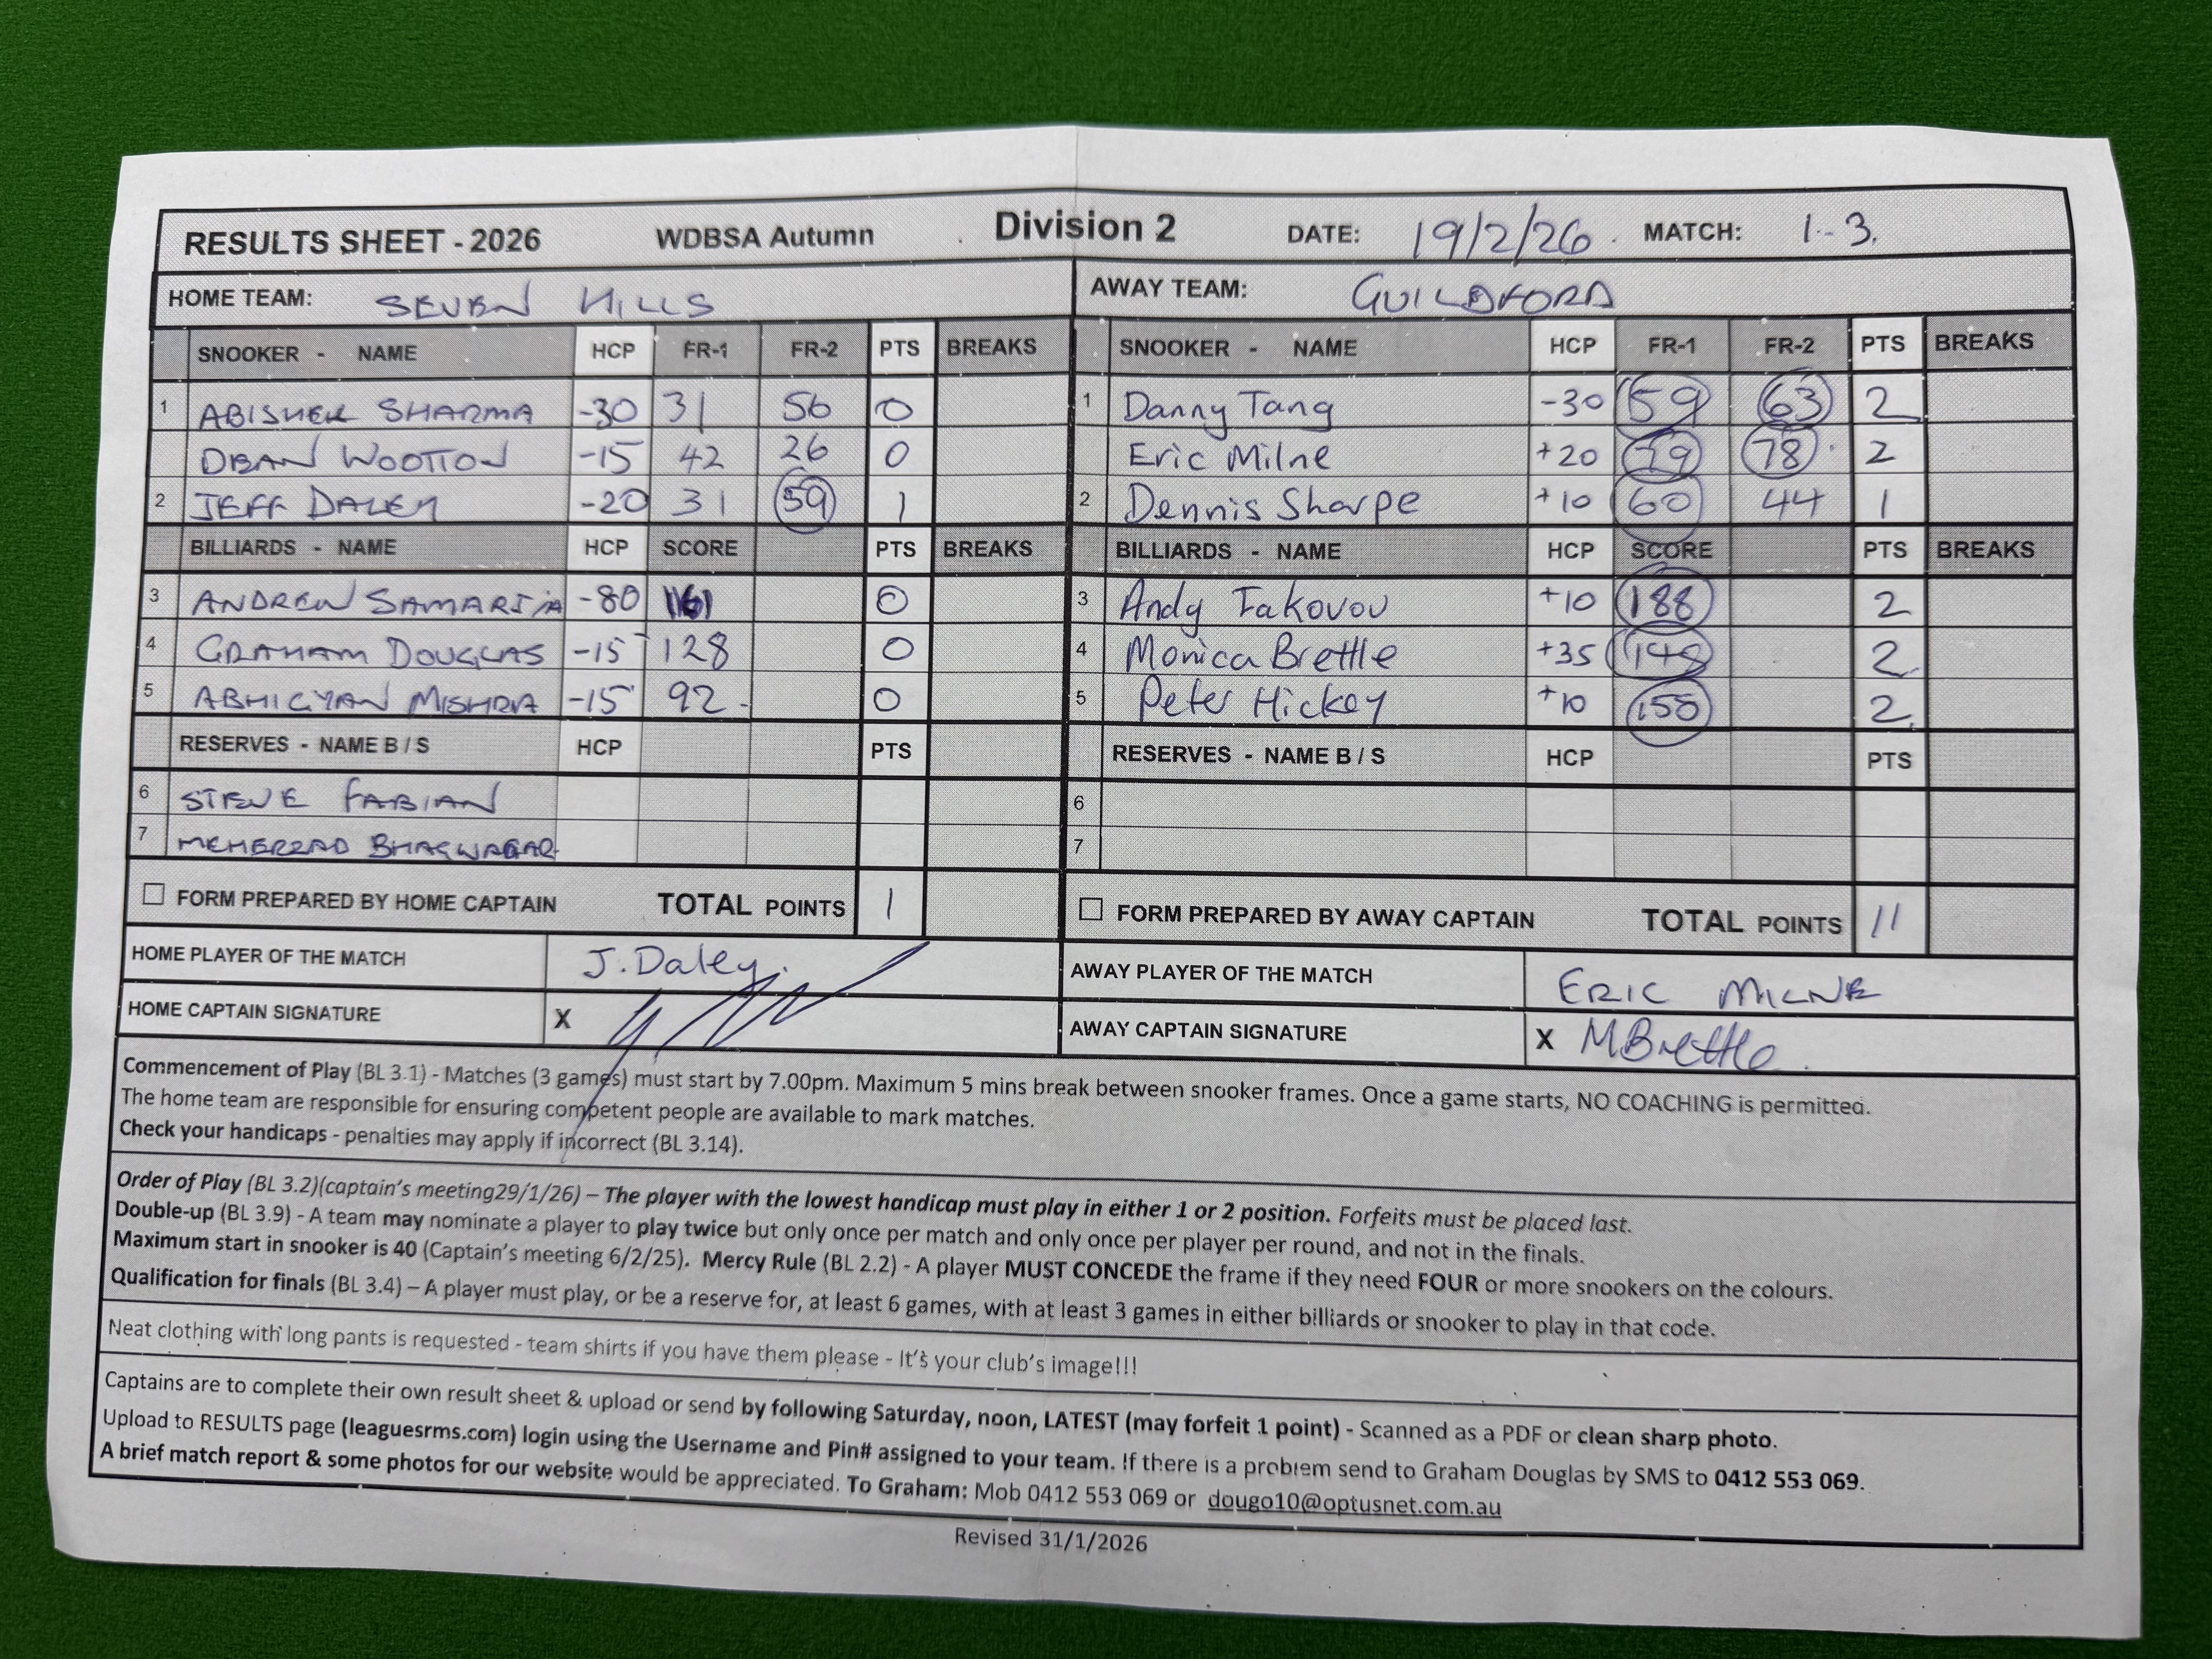 RESULTS SHEET - 2026 WDBSA Autumn Division 2 DATE: 19/2/26. MATCH: 1-3.
HOME TEAM: SEVEN HILLS AWAY TEAM: GUILDFORD
SNOOKER - NAME HCP FR-1 FR-2 PTS BREAKS SNOOKER - NAME HCP FR-1 FR-2 PTS BREAKS
1 ABISHEK SHARMA -30 31 56 0 1 Danny Tang -30 59 63 2
DEAN WOOTTON -15 42 26 0 Eric Milne +20 79 78 2
2 JEFF DALEY -20 31 59 1 2 Dennis Sharpe +10 60 44 1
BILLIARDS - NAME HCP SCORE PTS BREAKS BILLIARDS - NAME HCP SCORE PTS BREAKS
3 ANDREW SAMARJIA -80 161 0 3 Andy Iakovou +10 188 2
4 GRAHAM DOUGLAS -15 128 0 4 Monica Brettle +35 148 2
5 ABHIGYAN MISHRA -15 92 0 5 Peter Hickey +10 158 2
RESERVES - NAME B / S HCP PTS RESERVES - NAME B / S HCP PTS
6 STEVE FABIAN 6
7 MEHERZAD BHAGWAGAR 7
FORM PREPARED BY HOME CAPTAIN TOTAL POINTS 1 FORM PREPARED BY AWAY CAPTAIN TOTAL POINTS 11
HOME PLAYER OF THE MATCH J. Daley. AWAY PLAYER OF THE MATCH ERIC MILNE
HOME CAPTAIN SIGNATURE X AWAY CAPTAIN SIGNATURE X MBrettle.
Commencement of Play (BL 3.1) - Matches (3 games) must start by 7.00pm. Maximum 5 mins break between snooker frames. Once a game starts, NO COACHING is permitted.
The home team are responsible for ensuring competent people are available to mark matches.
Check your handicaps - penalties may apply if incorrect (BL 3.14).
Order of Play (BL 3.2)(captain's meeting29/1/26) – The player with the lowest handicap must play in either 1 or 2 position. Forfeits must be placed last.
Double-up (BL 3.9) - A team may nominate a player to play twice but only once per match and only once per player per round, and not in the finals.
Maximum start in snooker is 40 (Captain's meeting 6/2/25). Mercy Rule (BL 2.2) - A player MUST CONCEDE the frame if they need FOUR or more snookers on the colours.
Qualification for finals (BL 3.4) – A player must play, or be a reserve for, at least 6 games, with at least 3 games in either billiards or snooker to play in that code.
Neat clothing with long pants is requested - team shirts if you have them please - It's your club's image!!!
Captains are to complete their own result sheet & upload or send by following Saturday, noon, LATEST (may forfeit 1 point) - Scanned as a PDF or clean sharp photo.
Upload to RESULTS page (leaguesrms.com) login using the Username and Pin# assigned to your team. If there is a problem send to Graham Douglas by SMS to 0412 553 069.
A brief match report & some photos for our website would be appreciated. To Graham: Mob 0412 553 069 or dougo10@optusnet.com.au
Revised 31/1/2026